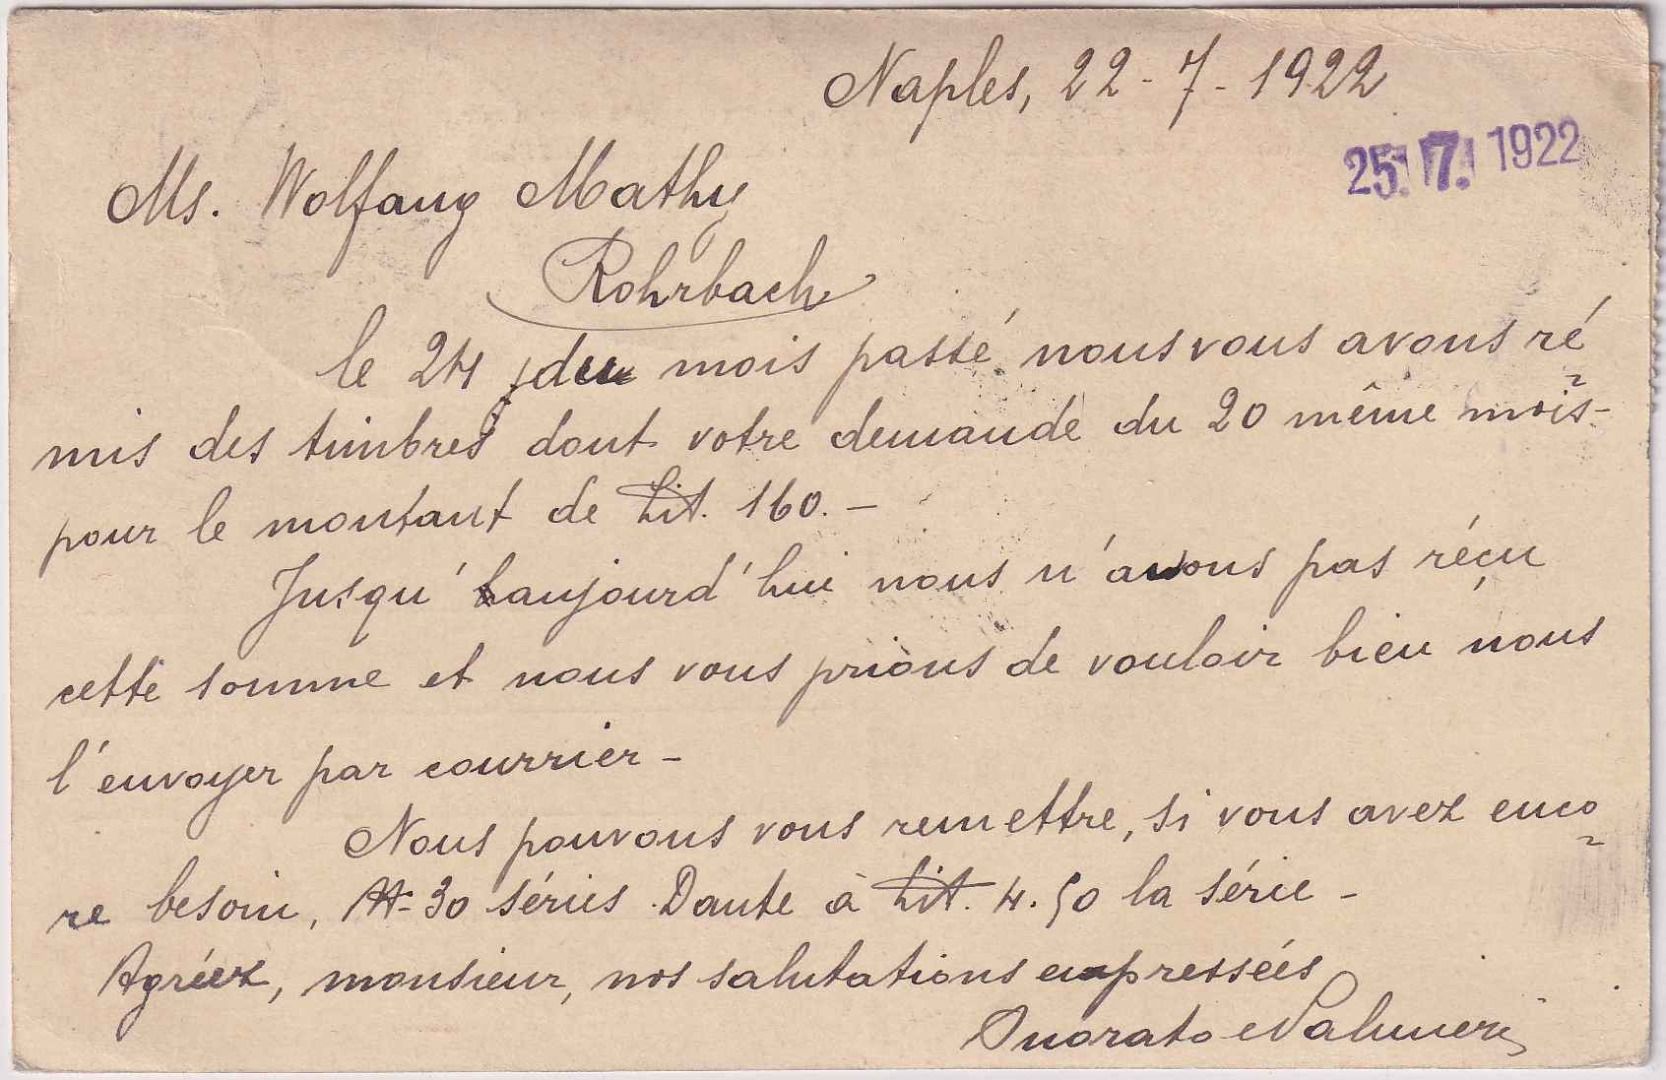 Naples, 22-7-1922
25. 7. 1922
Ms. Wolfang Mathy
Rohrbach
le 24 du mois passé nous vous avons ré
mis des timbres dont votre demande du 20 même mois-
pour le montant de Lit. 160.-
Jusqu'aujourd'hui nous n'avons pas réçu
cette somme et nous vous prions de vouloir bien nous
l'envoyer par courrier-
Nous pouvons vous remettre, si vous avez enco
re besoin, N- 30 séries Dante à Lit. 4.50 la série-
Agréez, monsieur, nos salutations empressées
Onorato